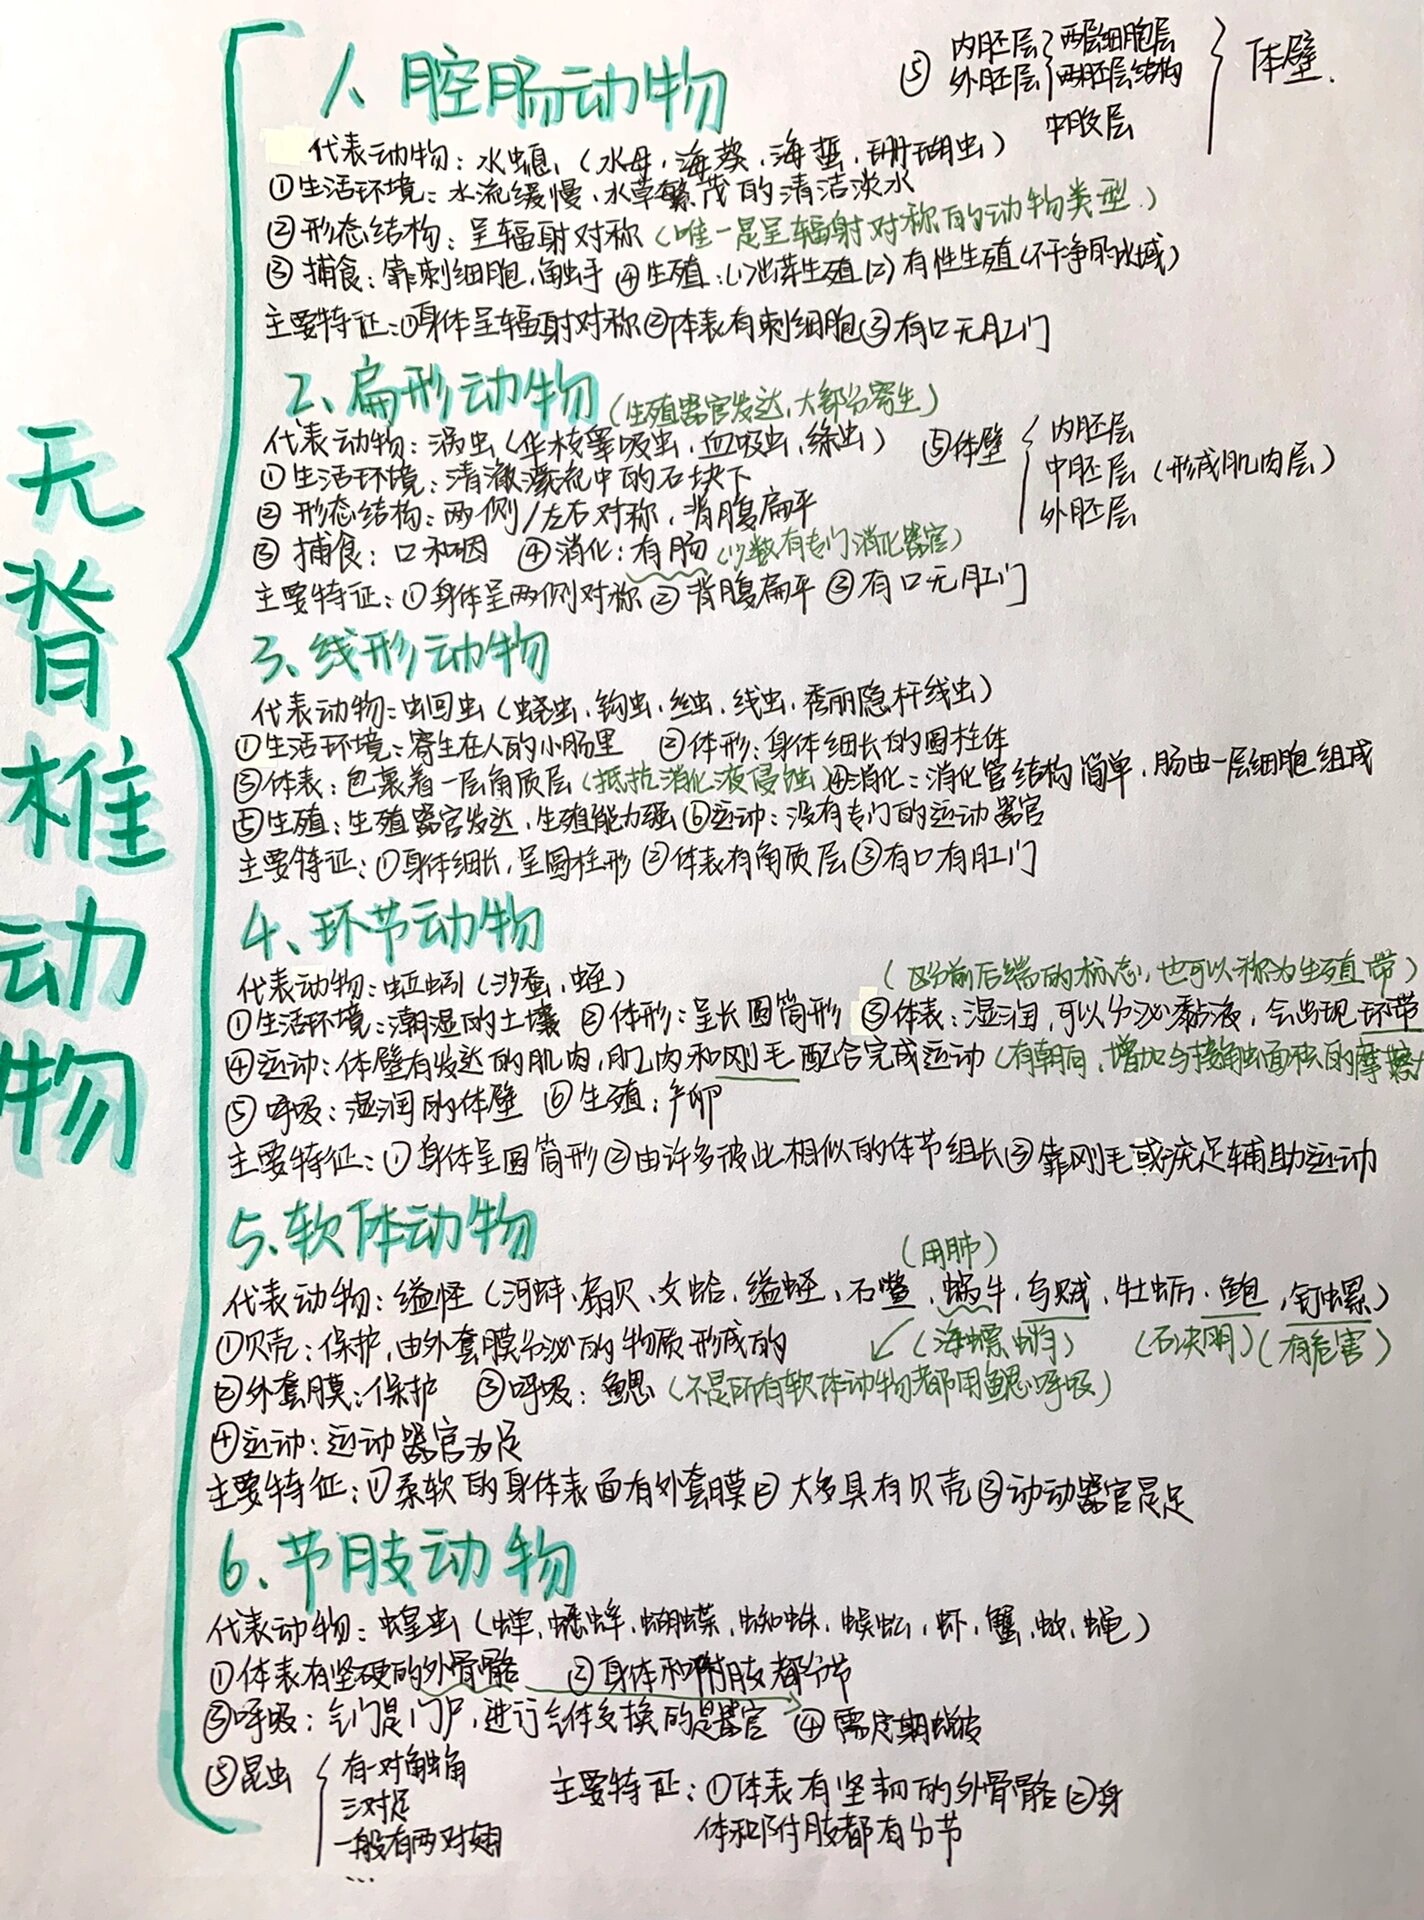 无脊椎动物
1、腔肠动物
⑤ 内胚层 外胚层 两层细胞层 两胚层结构 中胶层 体壁.
代表动物:水螅、(水母、海葵、海蜇、珊瑚虫)
①生活环境:水流缓慢、水草繁茂的清洁淡水
②形态结构:呈辐射对称(唯一是呈辐射对称的动物类型.)
③捕食:靠刺细胞、触手 ④生殖:(1)出芽生殖(2)有性生殖(不干净的水域)
主要特征:①身体呈辐射对称②体表有刺细胞③有口无肛门
2、扁形动物(生殖器官发达,大部分寄生)
代表动物:涡虫(华枝睾吸虫、血吸虫、绦虫)
⑤体壁 内胚层 中胚层(形成肌肉层) 外胚层
①生活环境:清澈溪流中的石块下
②形态结构:两侧/左右对称,背腹扁平
③捕食:口和咽 ④消化:有肠(少数有专门消化器官)
主要特征:①身体呈两侧对称②背腹扁平③有口无肛门
3、线形动物
代表动物:蛔虫(蛲虫、钩虫、丝虫、线虫、秀丽隐杆线虫)
①生活环境:寄生在人的小肠里 ②体形:身体细长的圆柱体
③体表:包裹着一层角质层(抵抗消化液侵蚀)④消化:消化管结构简单,肠由一层细胞组成
⑤生殖:生殖器官发达,生殖能力强⑥运动:没有专门的运动器官
主要特征:①身体细长,呈圆柱形②体表有角质层③有口有肛门
4、环节动物
代表动物:蚯蚓(沙蚕、蛭)
(区分前后端的标志,也可以称为生殖带)
①生活环境:潮湿的土壤 ②体形:呈长圆筒形 ③体表:湿润,可以分泌黏液,会出现环带
④运动:体壁有发达的肌肉,肌肉和刚毛配合完成运动(有朝向,增加与接触面积的摩擦
⑤呼吸:湿润的体壁 ⑥生殖:产卵
主要特征:①身体呈圆筒形②由许多彼此相似的体节组长③靠刚毛或疣足辅助运动
5、软体动物
(用肺)
代表动物:缢蛏(河蚌、扇贝、文蛤、缢蛏、石鳖、蜗牛、乌贼、牡蛎、鲍、钉螺)
①贝壳:保护,由外套膜分泌的物质形成的 (海螵蛸) (石决明)(有危害)
②外套膜:保护 ③呼吸:鳃(不是所有软体动物都用鳃呼吸)
④运动:运动器官为足
主要特征:①柔软的身体表面有外套膜②大多具有贝壳③动动器官是足
6、节肢动物
代表动物:蝗虫(蝉、蟋蟀、蝴蝶、蜘蛛、蜈蚣、虾、蟹、蚊、蝇)
①体表有坚硬的外骨骼 ②身体和附肢都分节
③呼吸:气门是门户,进行气体交换的是器官 ④需定期蜕皮
⑤昆虫 有一对触角 三对足 一般有两对翅 ...
主要特征:①体表有坚韧的外骨骼②身
体和附肢都有分节